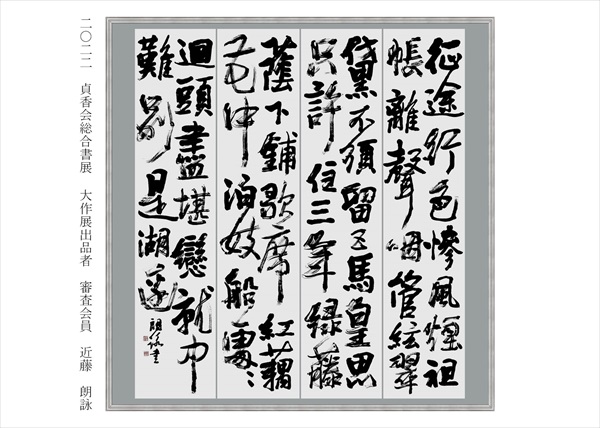 征途行色慘風煙祖
帳離聲咽管絃翠
黛不須留五馬皇恩
只許住三年緑藤
蔭下鋪歌席紅藕
花中泊妓船處々
迴頭盡堪戀就中
難別是湖邊
朗詠書
二〇二二 貞香会総合書展 大作展出品者 審査会員 近藤 朗詠